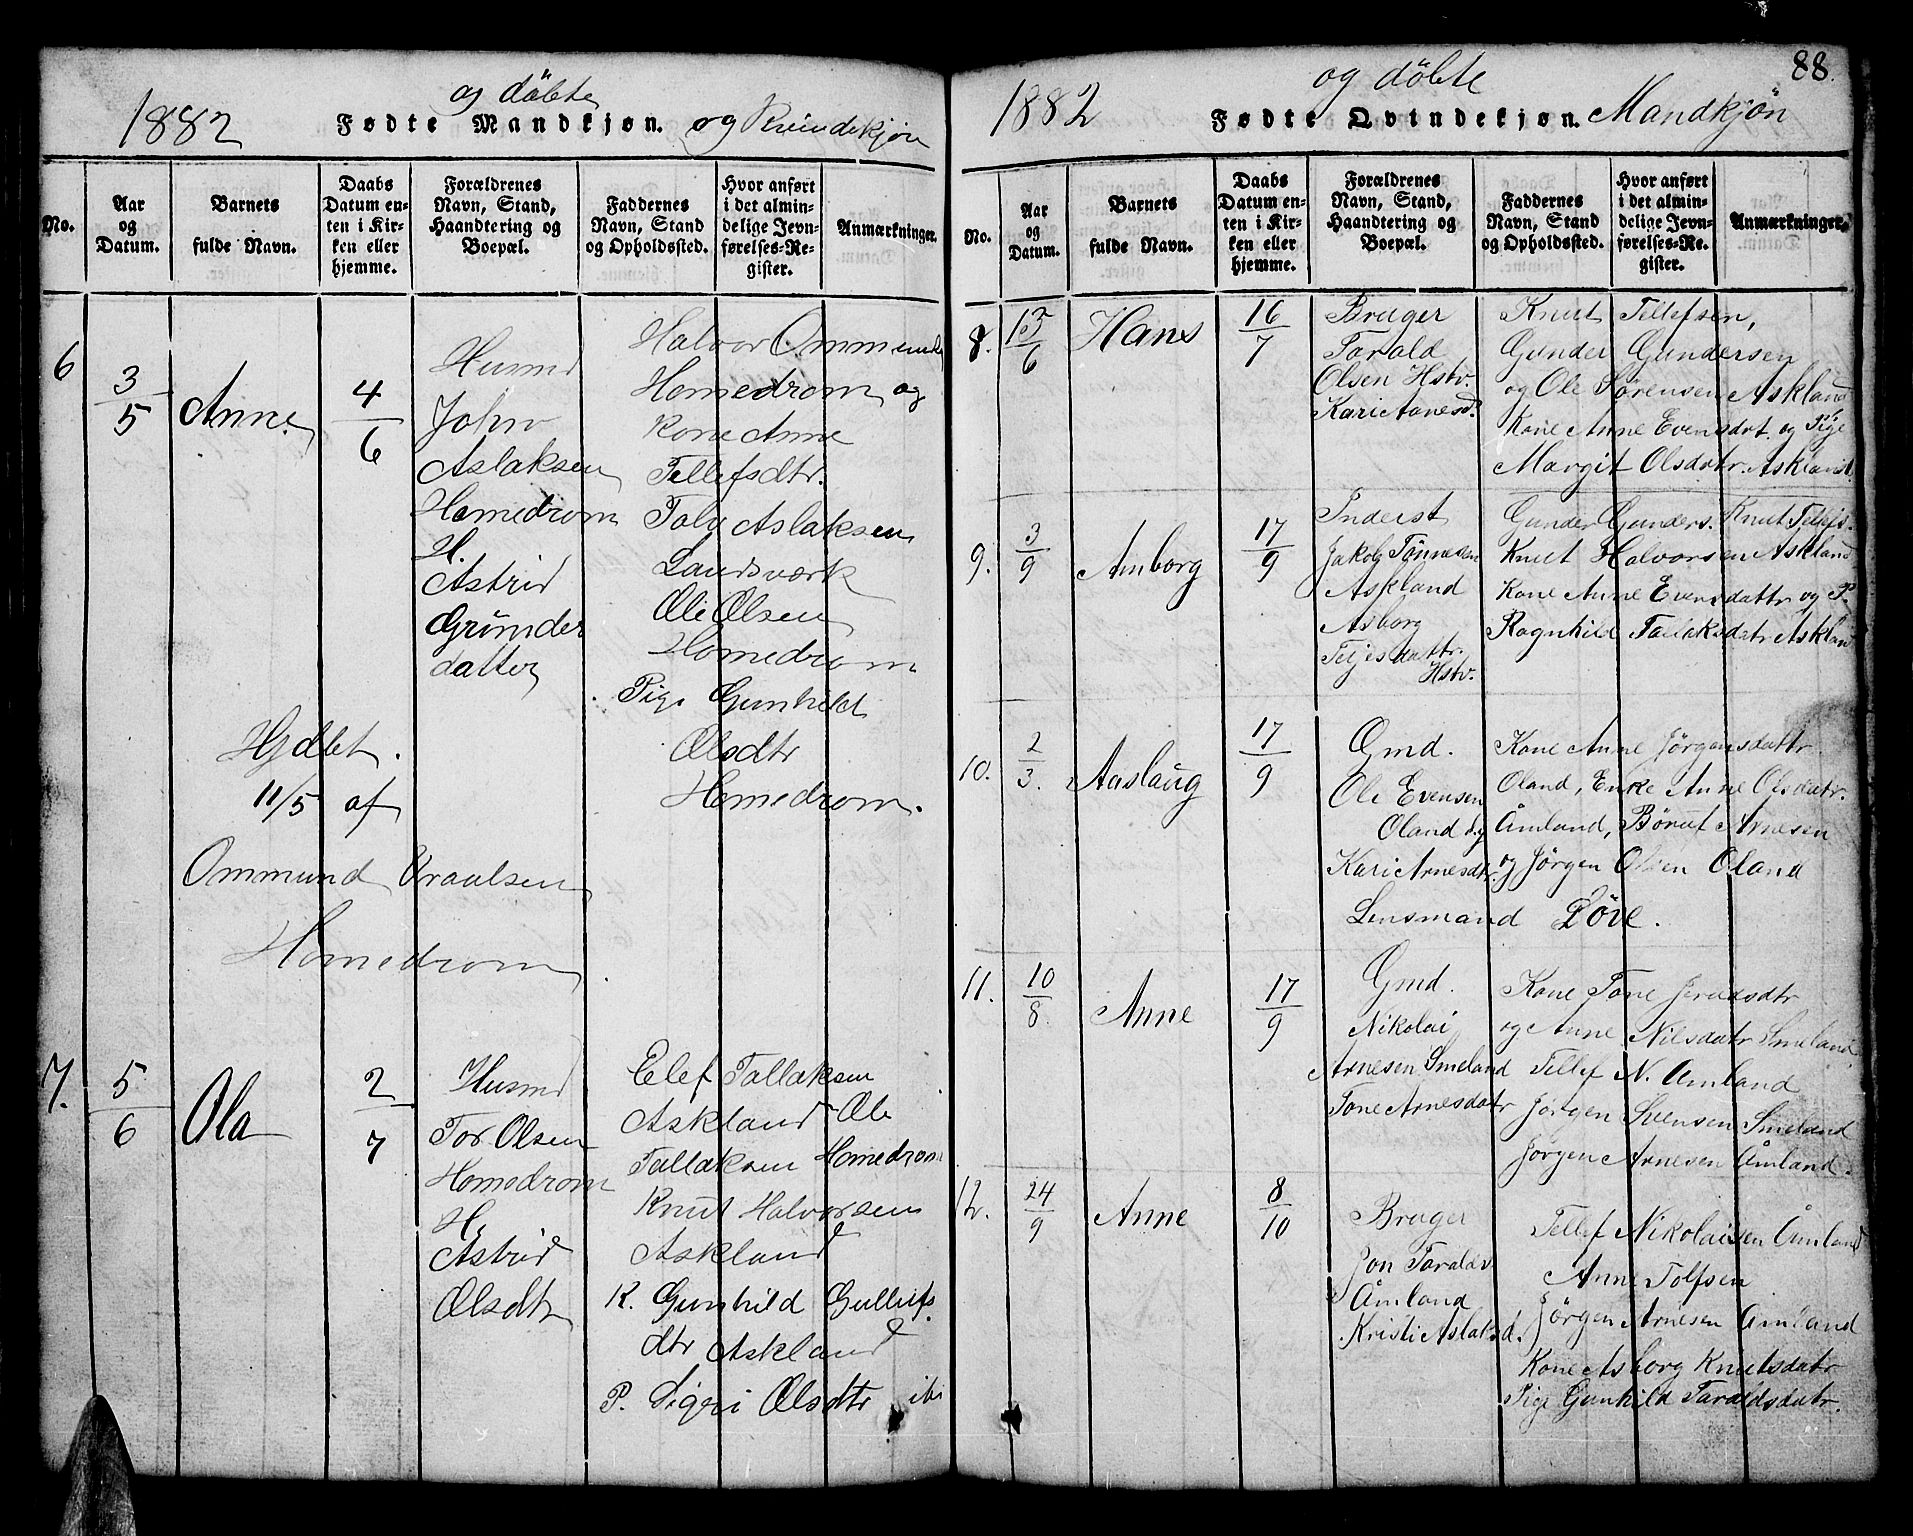 1882
og döbte
Fødte Mandkjøn. og Kvindekjøn
No.
Aar
og
Datum.
Barnets
fulde Navn.
Daabs
Datum en-
ten i Kir-
ken eller
hjemme.
Forældrenes
Navn, Stand,
Haandtering og
Boepæl.
Faddernes
Navn, Stand
og Opholdssted.
Hvor anført
i det almin-
delige Jevn-
førelses-Re-
gister.
Anmærkninger.
6
3/5
Anne
4/6
Husmd
John
Aslaksen
Homedrom
H.
Astrid
Gründer
datter
Halvor Ommunds
Homedrom og
Kone Anne
Tellefsdtr.
Tolv Aslaksen
Landsværk
Ole Olsen
Homedrom
Pige Gunhild
Olsdtr
Homedrom.
Hjdbt.
11/5 af
Ommund Vraalsen
Homedrom.
7.
5/6
Ola
2/7
Husmd
Tor Olsen
Homedrom
H.
Astrid
Olsdtr
Elef Tallaksen
Askland Ole
Tallaksen Homedrom
Knut Halvorsen
Askland
K. Gunhild Gullufs
dtr Askland
P. Sigri Olsdtr ibi
88.
1882
og döbte
Fødte Qvindekjøn. Mandkjøn
No.
Aar
og
Datum.
Barnets
fulde Navn.
Daabs
Datum en-
ten i Kir-
ken eller
hjemme.
Forældrenes
Navn, Stand,
Haandtering og
Boepæl.
Faddernes
Navn, Stand
og Opholdssted.
Hvor anført
i det almin-
delige Jevn-
førelses-Re-
gister.
Anmærkninger.
8.
13/6
Hans
16/7
Bruger
Tarald
Olsen Hstv.
Kari Aanesd.
Knut Tellefsen,
Gunder Gundersen
og Ole Sørensen Askland
Kone Anne Evensdot. og Pige
Margit Olsdatr. Askland
9.
3/9
Amborg
17/9
Inderst
Jakob Tønnesen
Askland
Asborg
Teljesdattr.
Hstv.
Gunder Gunders. Knut Tellefs.
Knut Halvorsen Askland
Kone Anne Evensdattr og P.
Ragnhild Tallaksdatr Askland
10.
2/3.
Aaslaug
17/9
Gmd.
Ole Evensen
Oland og
Kari Arnesdtr.
Kone Anne Jørgensdattr
Oland, Enke Anne Olsdatr.
Åmland, Børuf Arnesen
og Jørgen Olsen Oland
Lensmand Løve.
11.
10/8.
Anne
17/9
Gmd.
Nikolai
Arnesen Smeland
Tone Arnesdatr
Kone Tone Jerudsdtr
og Anne Nilsdatr Smeland
Tellef N. Åmland
Jørgen Svensen Smeland
Jørgen Arnesen Åmland.
12.
24/9
Anne
8/10
Bruger
Jon Taralds.
Åmland
Kristi Aslaksd.
Tellef Nikolaisen Åmland
Anne Tolfsen
Jørgen Arnesen Åmland
Kone Asborg Knutsdatr
Pige Gunhild Taraldsdatr.